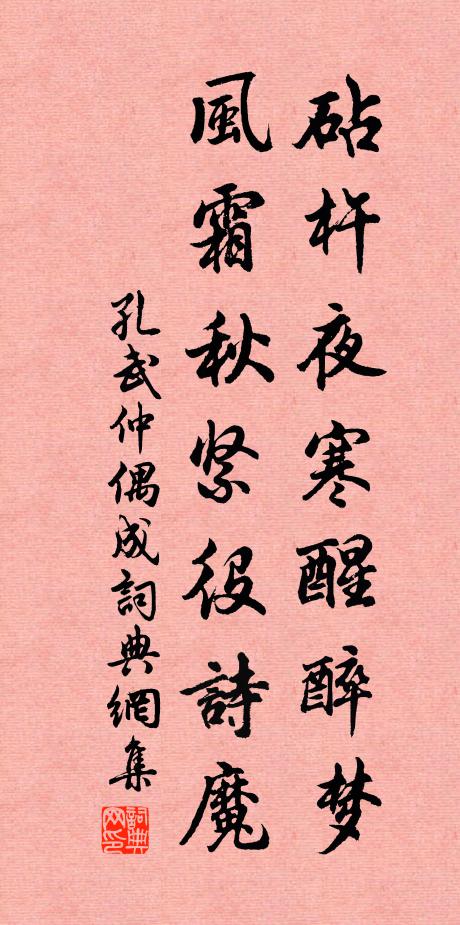 砧杵夜寒醒醉梦
風霜秋紧役詩魔
孔武仲偶成詞典網集
詞典网印